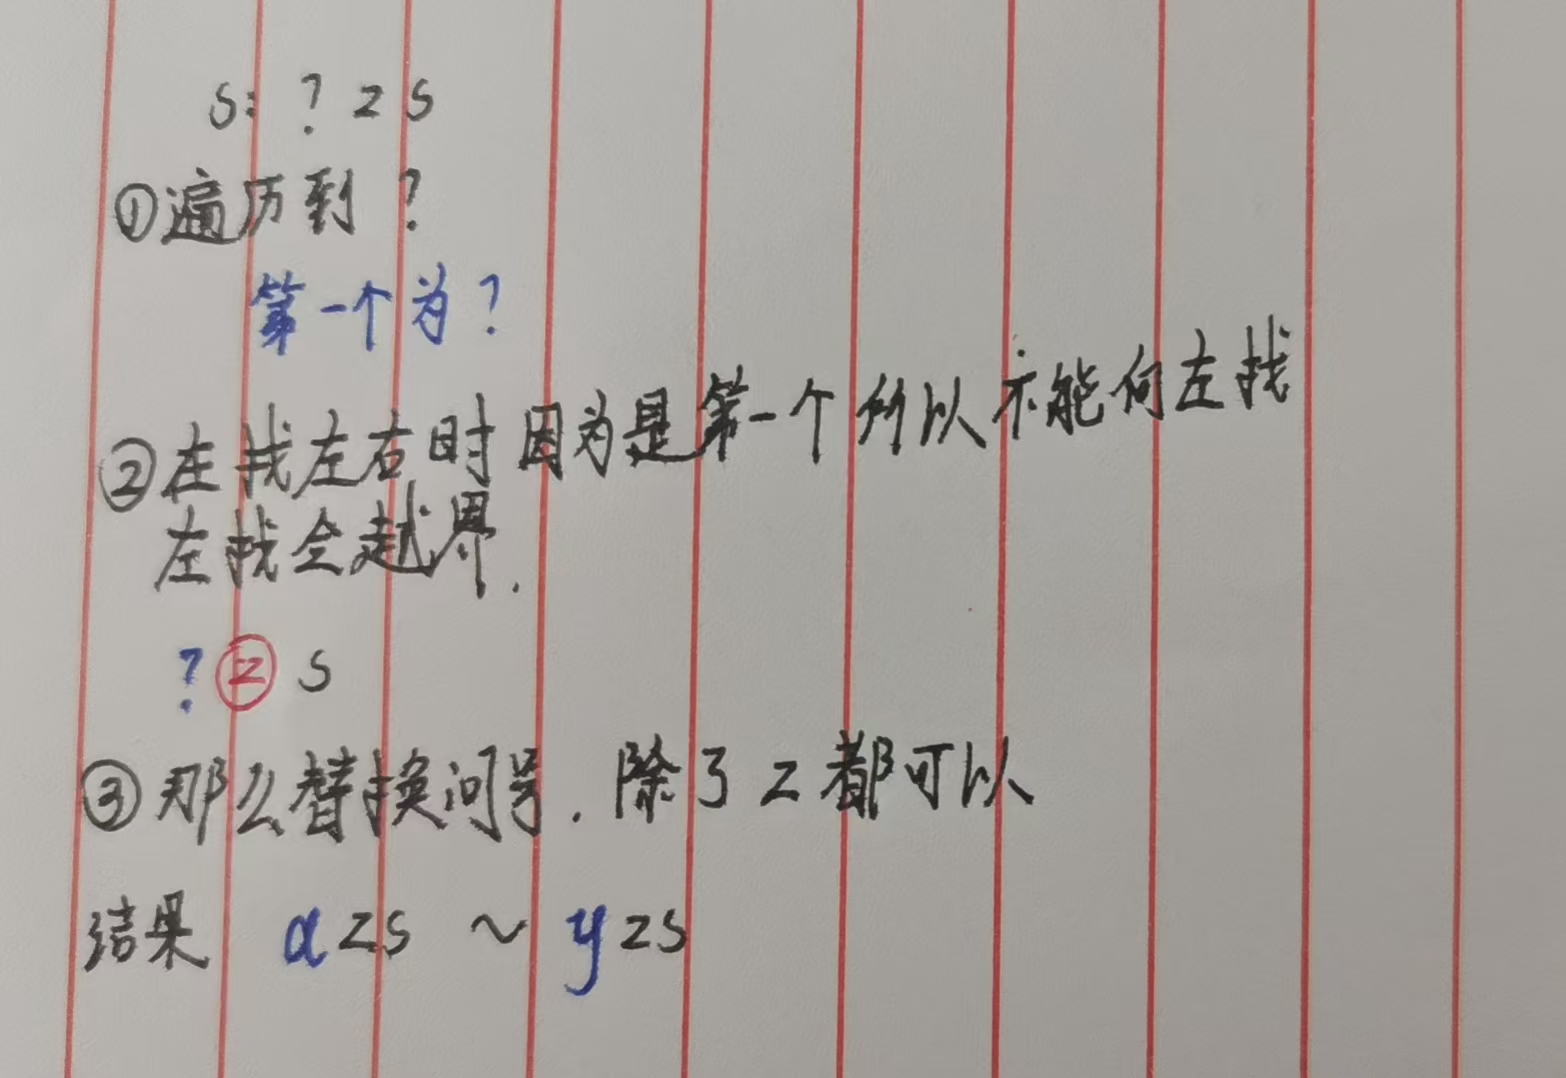 s: ? z s
①遍历到 ?
第一个为?
②在找左右时因为是第一个所以不能向左找
左找会越界.
? z s
③那么替换问号.除了z都可以
结果 azs ~ yzs